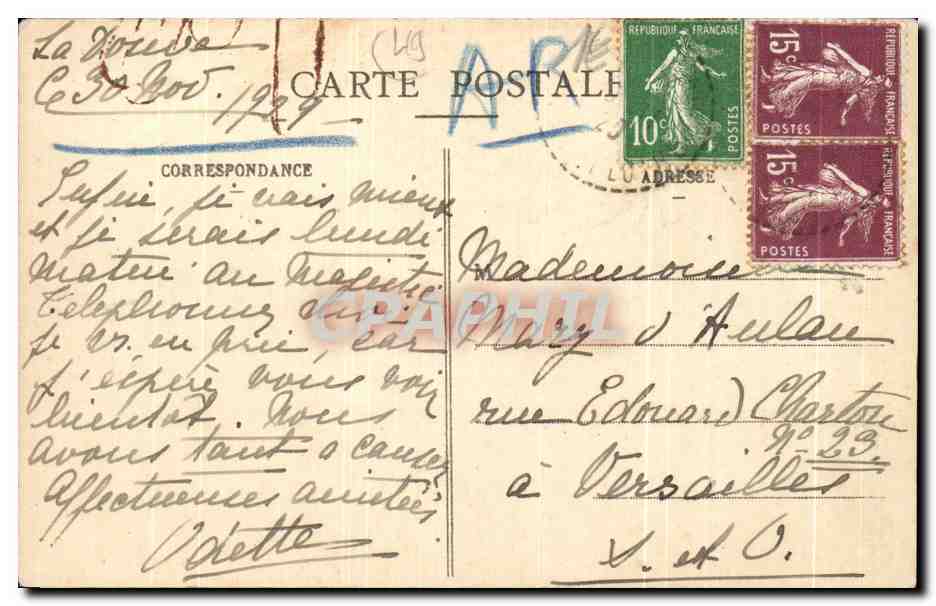 La
Ce 30 Nov. 1929
(49
AR
CARTE POSTALE
CORRESPONDANCE
Enfin, je vais mieux
et je serais lundi
matin au
Telephonez moi
je vs. en prie, car
j'espère vous voir
bientôt. Nous
avons tant a causer
Affectueuses amitiés
Odette
REPUBLIQUE FRANÇAISE
10c
POSTES
REPUBLIQUE FRANÇAISE
15c
POSTES
REPUBLIQUE FRANÇAISE
15c
POSTES
ADRESSE
Mademoiselle
Mary d'Aulan
rue Edouard Charton
No 23.
à Versailles
S. et O.
CPAPHIL